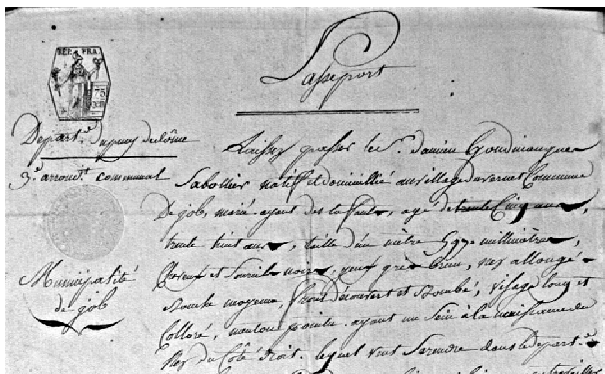 Passeport
REP. FRA.
75
Depart.t Dupuy dedôme
3.e arrond.t communal
Municipalité
de job
Laissez passer le S.r damien
Sabottier natif et domicillié au village du vernet Commune
De job, marié ayant des Enfants, age de trente Cinq ans,
trente huit ans, taille d'un mètre 597 millimètres,
Cheveux et Sourcils noirs, yeux gris brun, nez allongé
Bouche moyenne, front découvert et Bombé, visage long et
Colloré, menton pointu ayant un Sein a la naissance du
Nez du Côté droit. lequel veut se rendre dans le depart.t